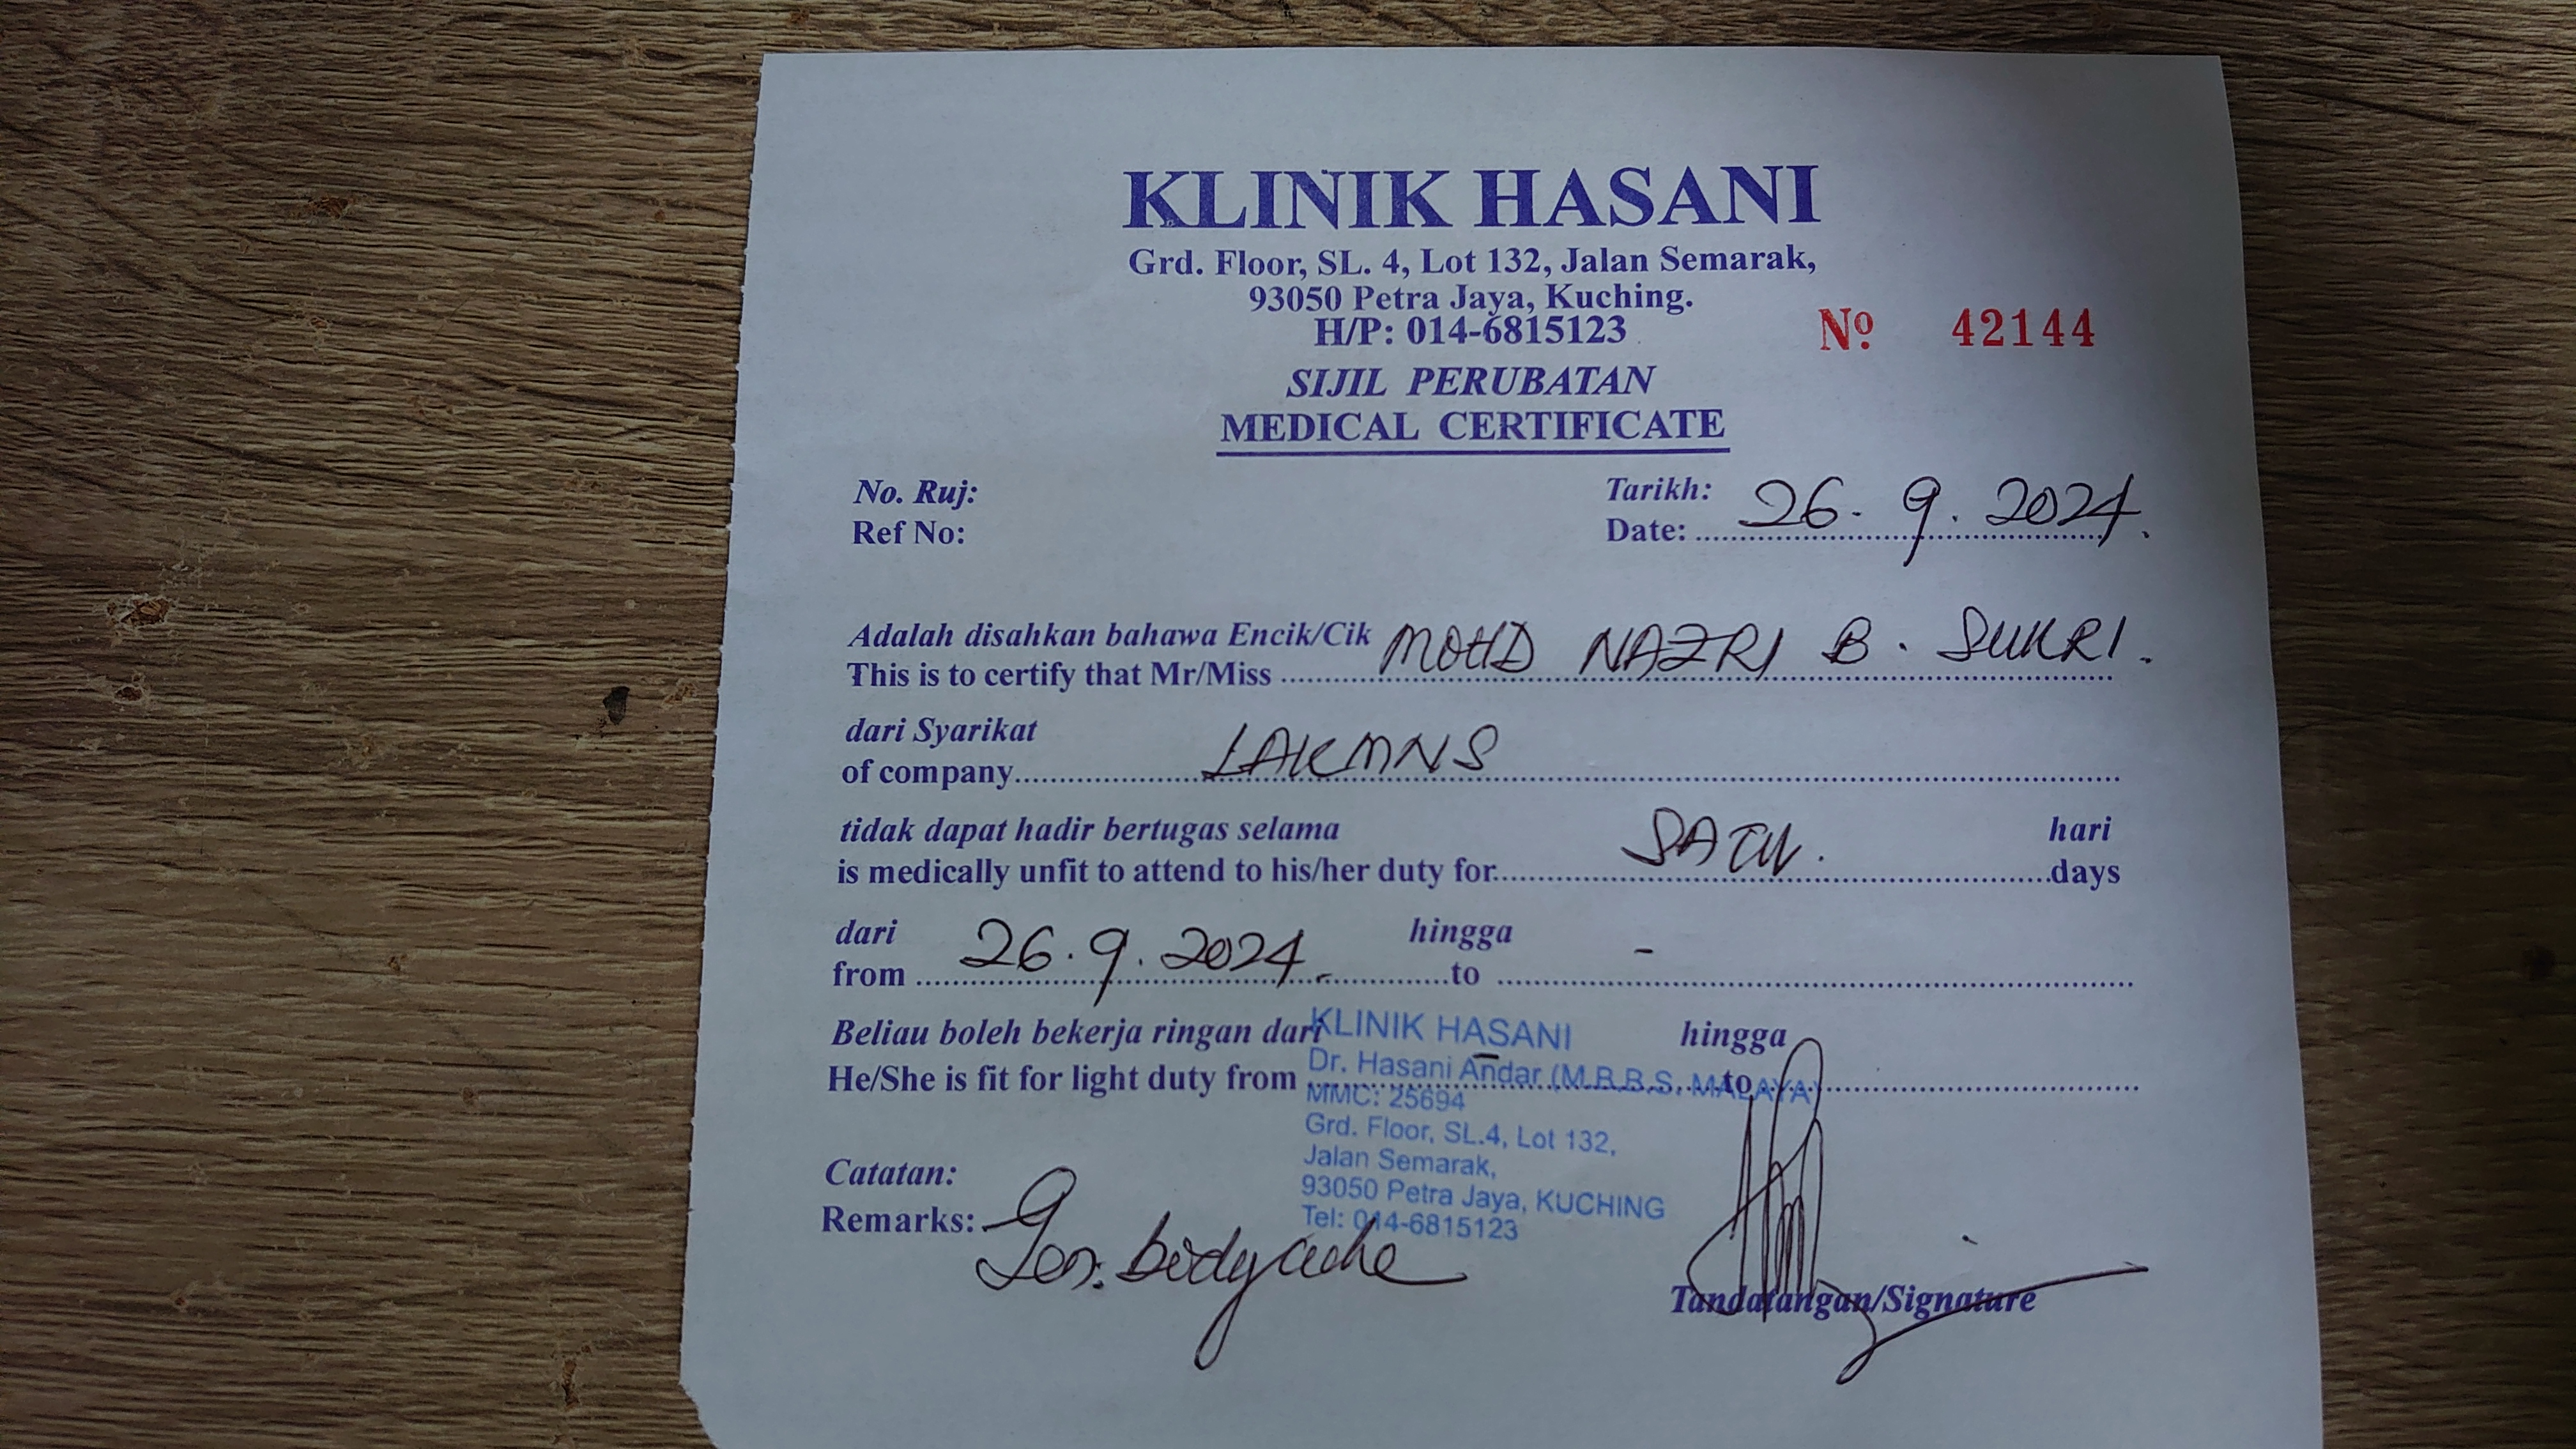 KLINIK HASANI
Grd. Floor, SL. 4, Lot 132, Jalan Semarak,
93050 Petra Jaya, Kuching.
H/P: 014-6815123
Nº 42144
SIJIL PERUBATAN
MEDICAL CERTIFICATE
No. Ruj:
Ref No:
Tarikh:
Date: 26.9.2024.
Adalah disahkan bahawa Encik/Cik
This is to certify that Mr/Miss MOHD NAZRI B. SUKRI.
dari Syarikat
of company LAKMNS
tidak dapat hadir bertugas selama hari
is medically unfit to attend to his/her duty for SATU. days
dari hingga
from 26.9.2024. to -
Beliau boleh bekerja ringan dari hingga
He/She is fit for light duty from - to
KLINIK HASANI
Dr. Hasani Andar (M.B.B.S. MALAYA)
MMC: 25694
Grd. Floor, SL.4, Lot 132,
Jalan Semarak,
93050 Petra Jaya, KUCHING
Tel: 014-6815123
Catatan:
Remarks: Gen. bodyache
Tandatangan/Signature